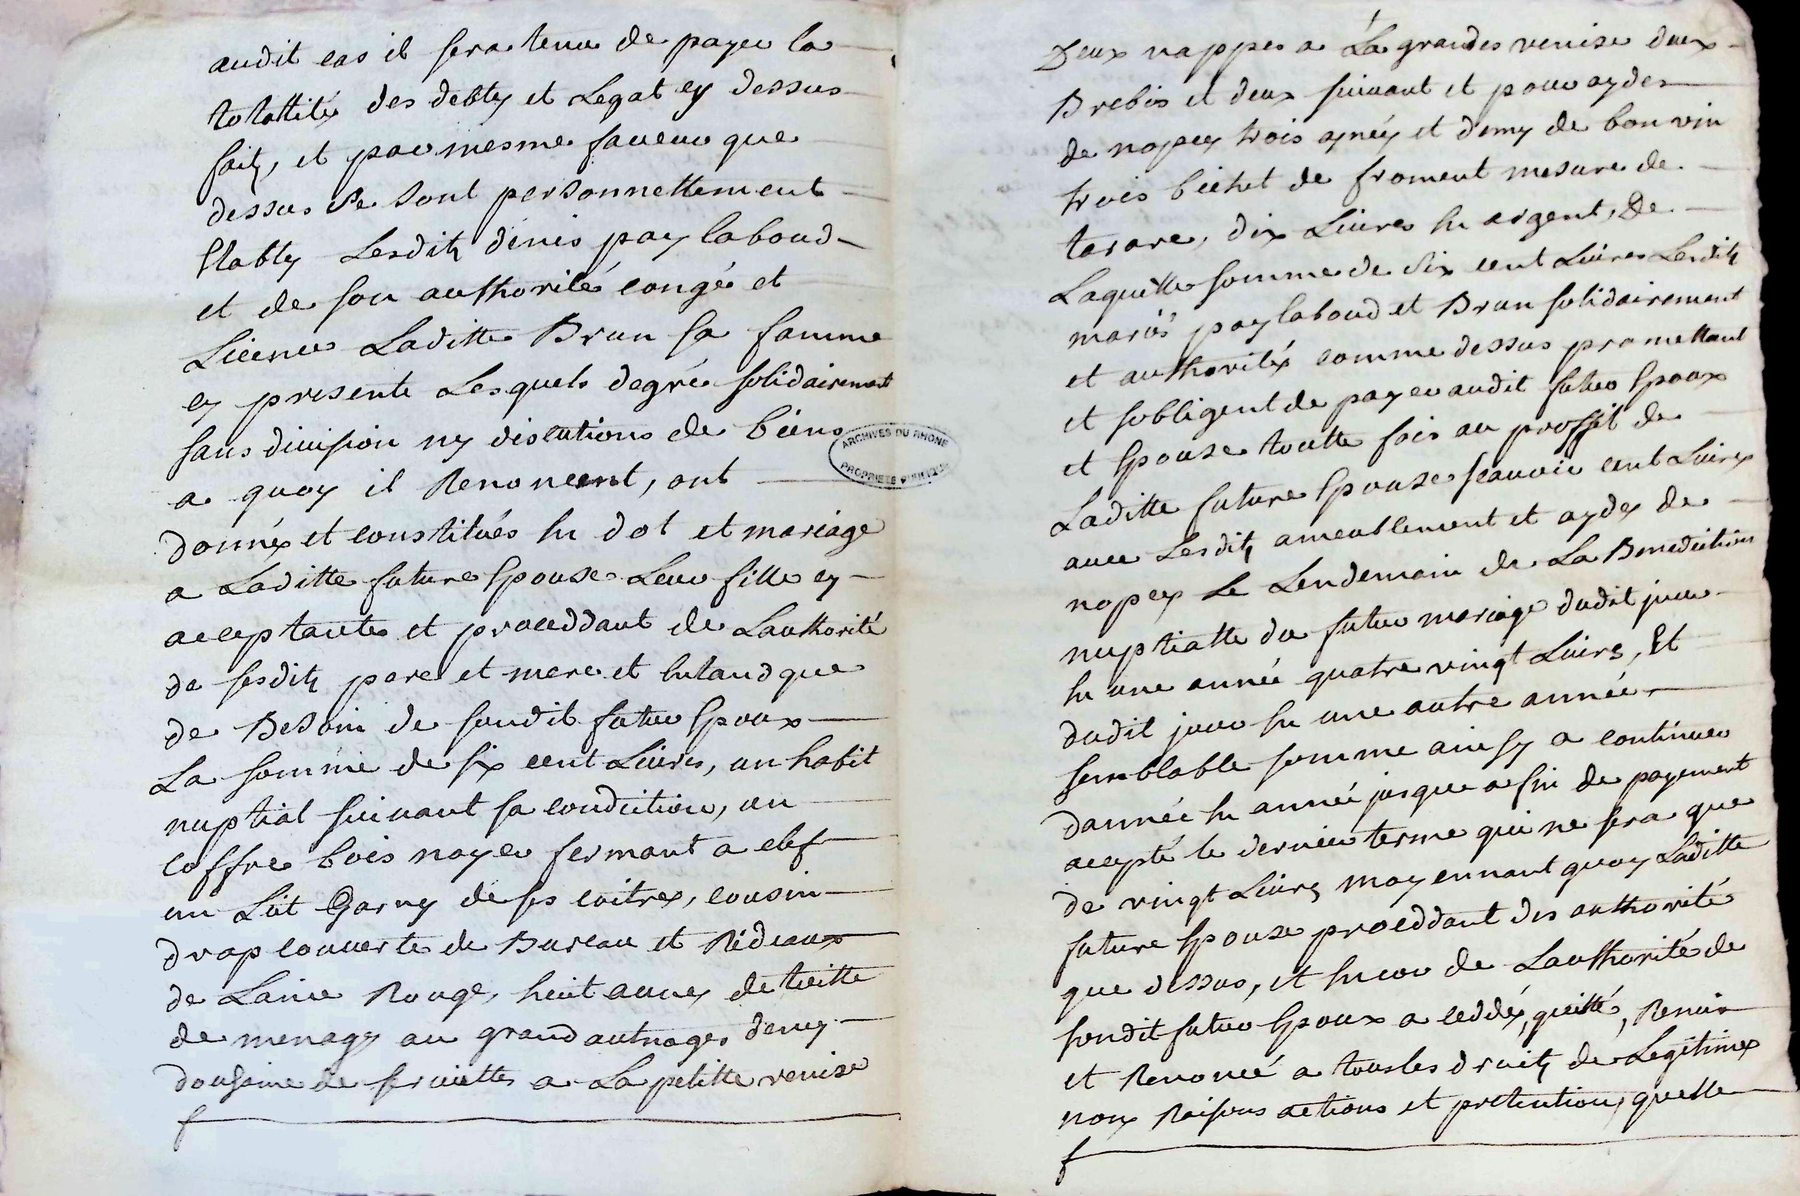 audit cas il sera tenu de payer la
totallité des debtes et Legat cy dessus
faitz, et par mesme faveur que
dessus se sont personnellement
Etably Lesditz denis paylaboud
et de son authorité congé et
Licence Laditte Brun sa famme
cy presente Lesquels degré solidairement
sans division ny discutions de biens
a quoy il Renoncent, ont
donnés et constitués En dot et mariage
a Laditte future Epouse Leur fille cy
acceptante et proceddant de Lauthorité
de sesditz pere et mere et Entand que
de Besoin de sondit futur Epoux
La somme de six cent Livres, un habit
nuptial suivant sa condition, un
coffre bois noyer fermant a clef
un Lit Garny de ses coitres, cousin
drap couverte de Bureau et Rideaux
de Laine Rouge, huit aunes de toille
de menage au grand aulnage, demy
dousaine de serviettes a La petitte venise
ARCHIVES DU RHONE
Deux nappes a La grandes venise deux
Brebis et deux suivant et pour ayder
de nopces trois asnés et demy de bon vin
trois bichet de froment mesure de
tarare, dix Livres En argent, De
Laquelle somme de six cent Livres Lesdits
mariés paylaboud et Brun solidairement
et authorités comme dessus promettent
et sobligent de payer audit futur Epoux
et Epouse toutte fois au proffit de
Laditte future Epouse scavoir cent Livres
avec Lesditz ameublement et aydes de
nopces Le Lendemain de La Benediction
nuptialle du futur mariage dudit jour
En une année quatre vingt Livres, Et
dudit jour En une autre année
semblable somme ainsy a continuer
dannée En année jusque a fin de payement
accepté le dernier terme qui ne sera que
de vingt Livres moyennant quoy Laditte
future Epouse proceddant des authorité
que dessus, et Encor de Lauthorité de
sondit futur Epoux a ceddé, quitté, Remis
et Renoncé a tous les droitz de Legitimes
noms Raisons actions et pretention, quelle